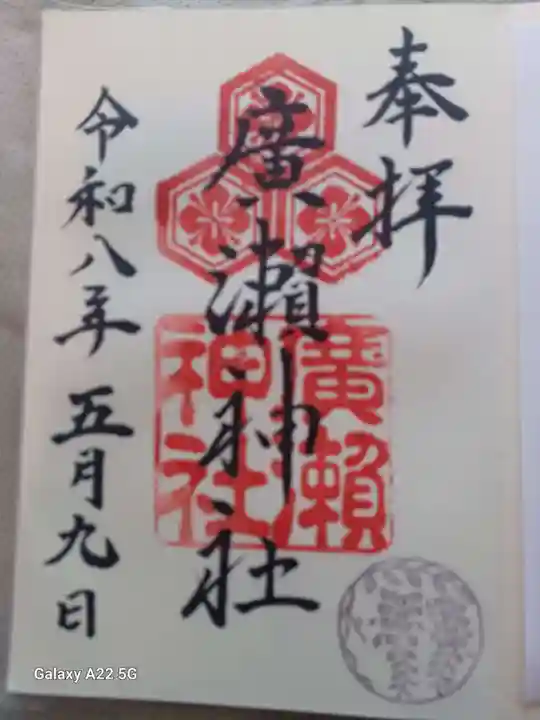 奉拝
廣瀬神社
廣瀬神社
令和八年五月九日
Galaxy A22 5G